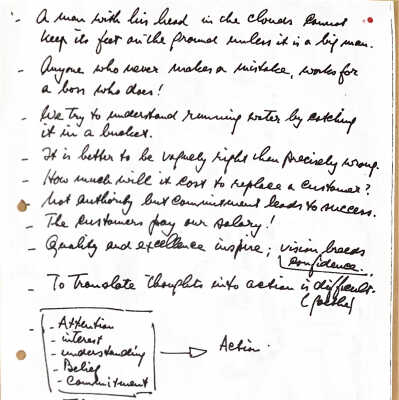 - A man with his head in the clouds cannot
keep its feet on the ground unless it is a big man.
- Anyone who never makes a mistake, works for
a boss who does!
- We try to understand running water by catching
it in a bucket.
- It is better to be vaguely right than precisely wrong.
- How much will it cost to replace a customer?
- Not authority but commitment leads to success.
- The customers pay our salary!
- Quality and excellence inspire; vision breeds
confidence.
- To translate thoughts into action is difficult.
(Goethe)
- Attention
- interest
- understanding → Action.
- Belief
- Commitment